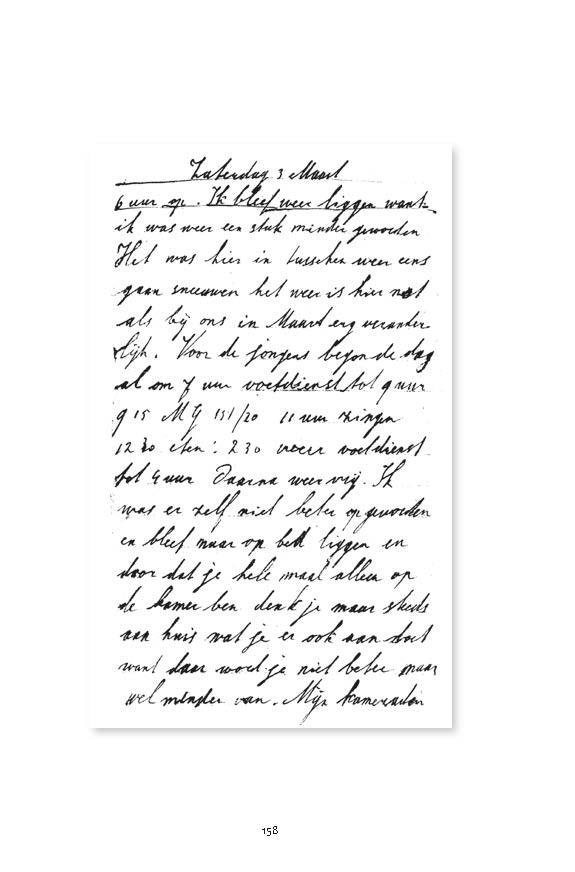 Zaterdag 3 Maart
6 uur op. Ik bleef weer liggen want
ik was weer een stuk minder geworden
Het was hier in tusschen weer eens
gaan sneeuwen het weer is hier net
als bij ons in Maart erg verander
lijk. Voor de jongens begon de dag
al om 7 uur voetdienst tot 9 uur
9 15 MG 151/20 11 uur zingen
12 30 eten. 2 30 weer voetdienst
tot 4 uur Daarna weer vrij. Ik
was er zelf niet beter op geworden
en bleef maar op bed liggen en
door dat je hele maal alleen op
de kamer ben denk je maar steeds
aan huis wat je er ook aan doet
want daar word je niet beter maar
wel minder van. Mijn kameraden
158